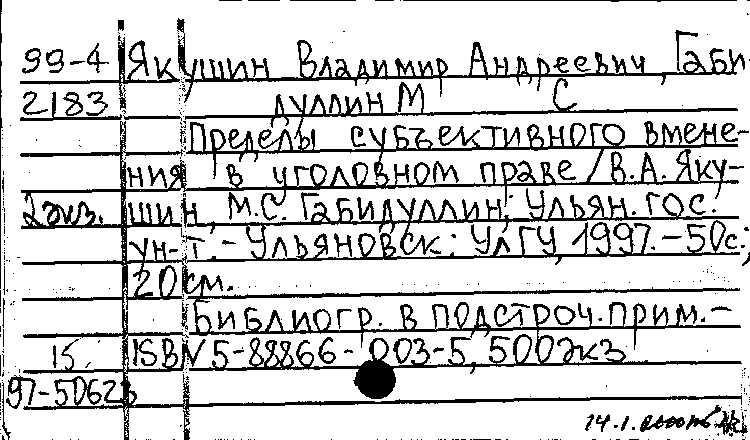 99-4 Якушин Владимир Андреевич, Габи-
2183 дуллин М С
Пределы субъективного вмене-
ния в уголовном праве / В.А. Яку-
2 экз. шин, М.С. Габидуллин; Ульян. гос.
ун-т. - Ульяновск: УлГУ, 1997. - 50с.;
20 см.
Библиогр. в подстроч. прим. -
15. ISBN 5-88866-003-5, 500 экз
97-5062
14.1.